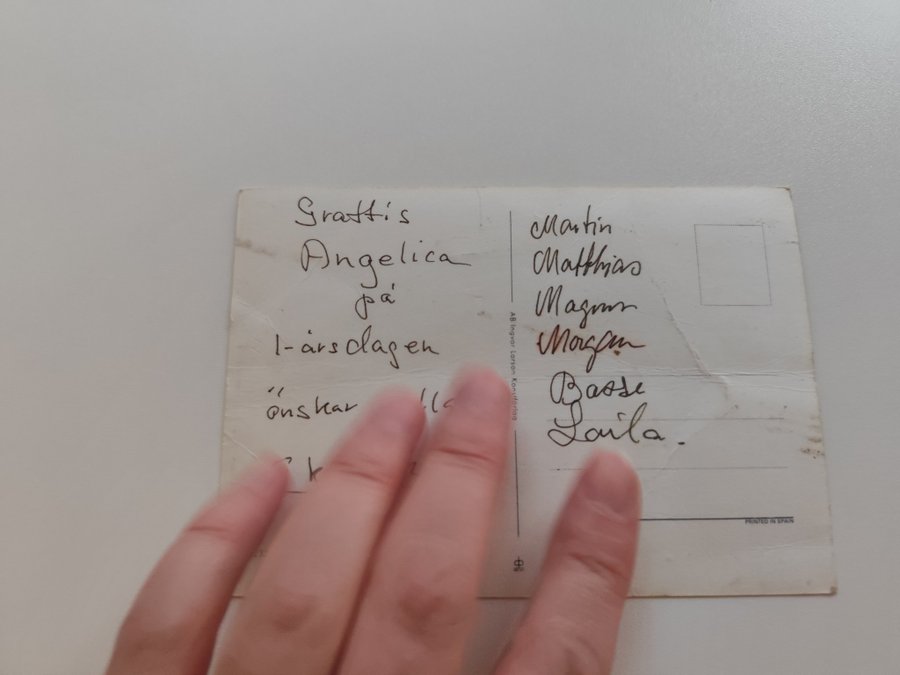 Grattis
Angelica
på
1-årsdagen
önskar
Martin
Matthias
Magnus
Morgan
Basse
Laila.
AB Ingvar Larson Konstförlag
PRINTED IN SPAIN